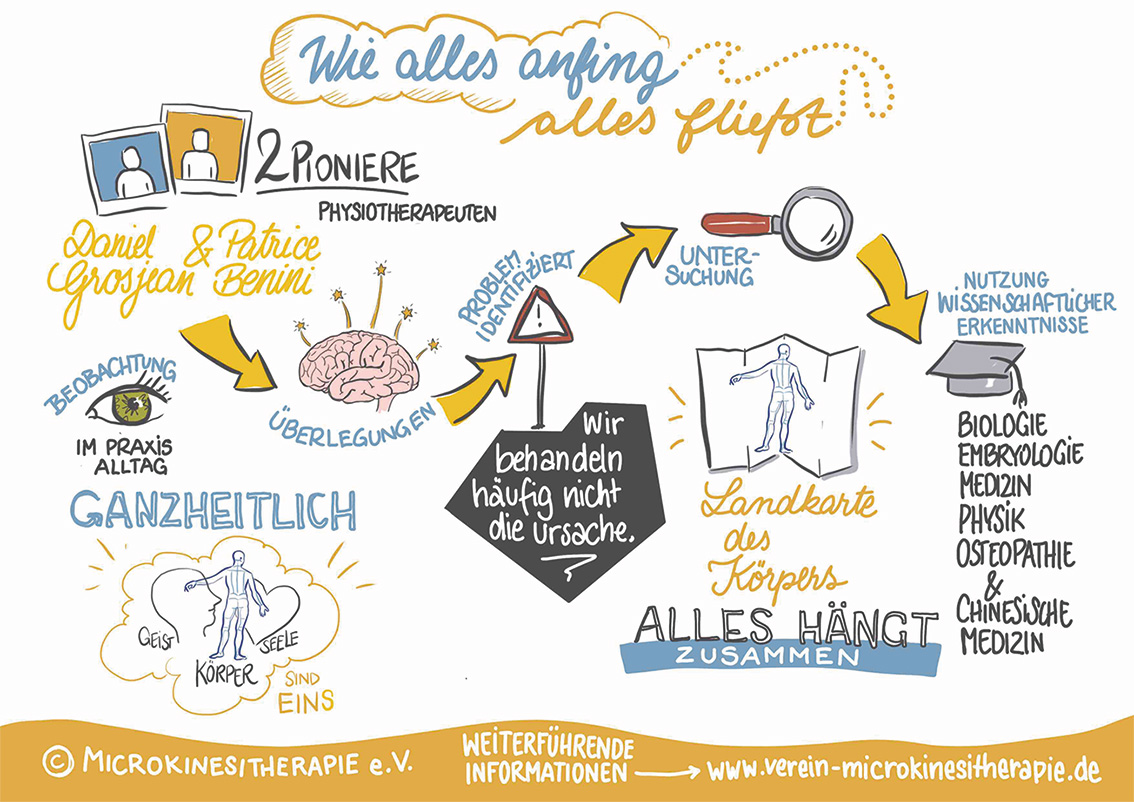 Wie alles anfing
alles fließt
2 PIONIERE
PHYSIOTHERAPEUTEN
Daniel & Patrice
Grosjean Benini
BEOBACHTUNG
IM PRAXIS
ALLTAG
ÜBERLEGUNGEN
PROBLEM
IDENTIFIZIERT
!
Wir
behandeln
häufig nicht
die Ursache.
UNTER-
SUCHUNG
NUTZUNG
WISSENSCHAFTLICHER
ERKENNTNISSE
BIOLOGIE
EMBRYOLOGIE
MEDIZIN
PHYSIK
OSTEOPATHIE
&
CHINESISCHE
MEDIZIN
Landkarte
des
Körpers
ALLES HÄNGT
ZUSAMMEN
GANZHEITLICH
GEIST
SEELE
KÖRPER
SIND
EINS
© MICROKINESITHERAPIE e.V.
WEITERFÜHRENDE
INFORMATIONEN → www.verein-microkinesitherapie.de